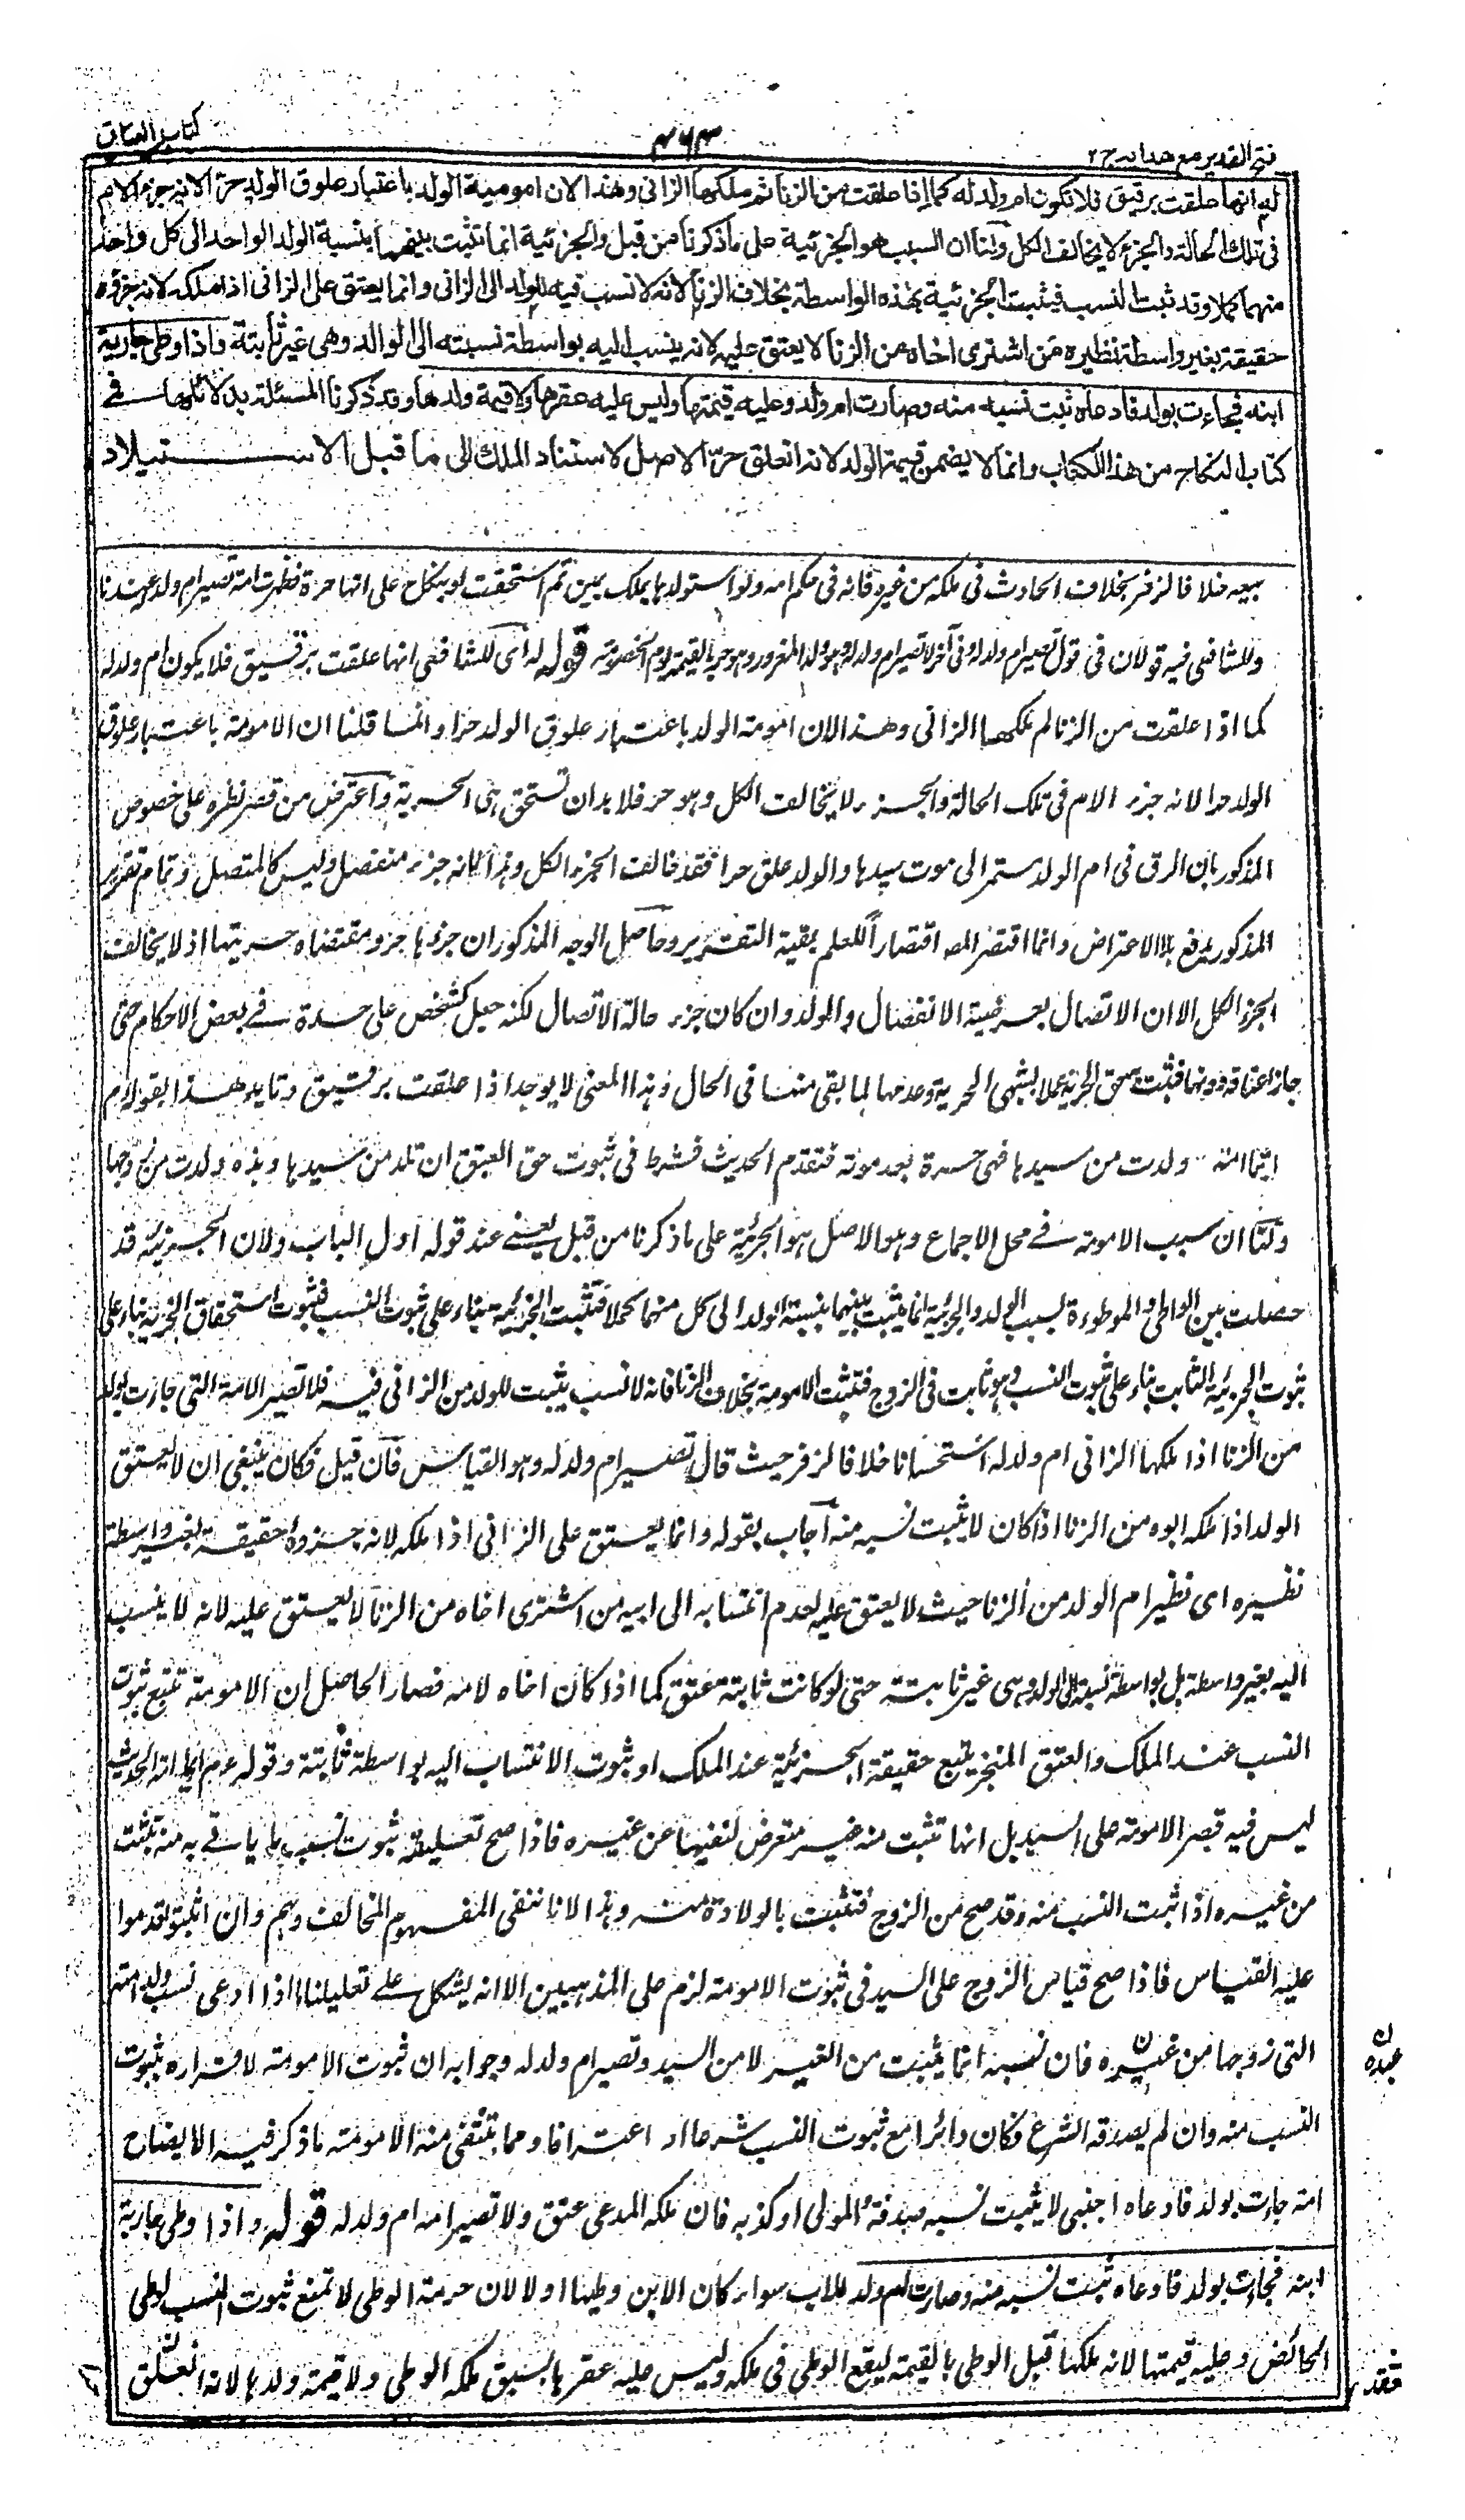 فتح القدير مع هدايه ج ٢
٤٦٣
كتاب العتاق
له انها علقت برقيق فلا تكون ام ولد له كما اذا علقت من الزنا ثم ملكها الزانى وهذا لان امومية الولد باعتبار علوق الولد حرا لانه جزء الام
فى تلك الحالة والجزء لا يخالف الكل ولنا ان السبب هو الجزئية على ما ذكرنا من قبل والجزئية انما تثبت بينهما بنسبة الولد الواحد الى كل واحد
منهما كملا وقد ثبت النسب فيثبت الجزئية بهذه الواسطة بخلاف الزنا لانه لا نسب فيه للولد الى الزانى وانما يعتق على الزانى اذا ملكه لانه جزؤه
حقيقة بغير واسطة نظيره من اشترى اخاه من الزنا لا يعتق عليه لانه ينسب اليه بواسطة نسبته الى الوالد وهى غير ثابتة واذا وطى جارية
ابنه فجاءت بولد فادعاه ثبت نسبه منه وصارت ام ولد وعليه قيمتها وليس عليه عقرها ولا قيمة ولدها وقد ذكرنا المسئلة بدلائلها فى
كتاب النكاح من هذا الكتاب وانما لا يضمن قيمة الولد لانه انعلق حر الاصل لاستناد الملك الى ما قبل الاستيلاد
بيعه خلافا لزفر بخلاف الحادث فى ملكه من غيره فانه فى حكم امه ولو استولدها بملك يمين ثم استحقت لو بنكاح على انها حرة فظهرت امة تصير ام ولد عندنا
وللشافعى فيه قولان فى قول تصير ام ولد له وفى آخر لا تصير ام ولد له وهو ولد المغرور وهو حر بالقيمة يوم الخصومة قوله له اى للشافعى انها علقت برقيق فلا يكون ام ولد له
كما اذا علقت من الزنا ثم ملكها الزانى وهذا لان امومة الولد باعتبار علوق الولد حرا وانما قلنا ان الامومة باعتبار علوق
الولد حرا لانه جزء الام فى تلك الحالة والجزء لا يخالف الكل وهو حر فلا بد ان تستحق هى الحرية واعترض من قصر نظره على خصوص
المذكور بان الرق فى ام الولد مستمر الى موت سيدها والولد علق حرا فقد خالف الجزء الكل وهذا لانه جزء منفصل وليس كالمتصل وتمام تقرير
المذكور يدفع هذا الاعتراض وانما اقتصر المص اقتصارا للعلم ببقية التقرير وحاصل الوجه المذكور ان جزءها جزء ومقتضاه حريتها اذ لا يخالف
الجزء الكل الا ان الاتصال بعرضية الانفصال والولد وان كان جزء حالة الاتصال لكنه جعل كشخص على حدة فى بعض الاحكام حتى
جاز اعتاقه دونها فثبت حق الحرية عملا بشبهى الحرية وعدمها لما بقى منها فى الحال وهذا المعنى لا يوجد اذا علقت برقيق وتايد هذا بقوله عم
ايما امة ولدت من سيدها فهى حرة بعد موته فتقدم الحديث فشرط فى ثبوت حق العتق ان تلد من سيدها وهذه ولدت من زوجها
ولنا ان سبب الامومة فى محل الاجماع وهو الاصل هو الجزئية على ما ذكرنا من قبل يعنى عند قوله اول الباب ولان الجزئية قد
حصلت بين الواطى والموطوءة بسبب الولد والجزئية انما يثبت بينهما بنسبة الولد الى كل منهما كملا فتثبت الجزئية بناء على ثبوت النسب فثبوت استحقاق الحرية بناء على
ثبوت الجزئية الثابت بناء على ثبوت النسب وهو ثابت فى الزوج فتثبت الامومة بخلاف الزنا فانه لا نسب يثبت للولد من الزانى فيه فلا تصير الامة التى جاءت بولد
من الزنا اذا ملكها الزانى ام ولد له استحسانا خلافا لزفر حيث قال تصير ام ولد له وهو القياس فان قيل فكان ينبغى ان لا يعتق
الولد اذا ملكه ابوه من الزنا اذا كان لا يثبت نسبه منه اجاب بقوله وانما يعتق على الزانى اذا ملكه لانه جزوه حقيقة بغير واسطة
نظيره اى نظير ام الولد من الزنا حيث لا يعتق عليه لعدم انتسابه الى ابيه من اشترى اخاه من الزنا لا يعتق عليه لانه لا ينسب
اليه بغير واسطة بل بواسطة نسبته الى الوالد وهى غير ثابتة حتى لو كانت ثابتة عتق كما اذا كان اخاه لامه فصار الحاصل ان الامومة تتبع ثبوت
النسب عند الملك والعتق المنجز يتبع حقيقة الجزئية عند الملك او ثبوت الانتساب اليه بواسطة ثابتة وقوله عم ايما امة الحديث
ليس فيه قصر الامومة على السيد بل انها تثبت منه غير متعرض لنفيها عن غيره فاذا صح تعليقه ثبوت نسب ما ياتى به منه تثبت
من غيره اذا ثبت النسب منه وقد صح من الزوج فتثبت بالولادة منه وهذا لانا ننفى المفهوم المخالف وهم وان اثبتوه لقدموا
عليه القياس فاذا صح قياس الزوج على السيد فى ثبوت الامومة لزم على المذهبين الا انه يشكل على تعليلنا ما اذا ادعى نسب ولد امته
التى زوجها من غيره فان نسبه انما يثبت من الغير لا من السيد وتصير ام ولد له وجوابه ان ثبوت الامومة لاقراره بثبوت
النسب منه وان لم يصدقه الشرع فكان دائرا مع ثبوت النسب شرعا او اعترافا ومما ينتفى منه الامومة ما ذكر فيه الايضاح
امة جاءت بولد فادعاه اجنبى لا يثبت نسبه صدقه المولى او كذبه فان ملكه المدعى عتق ولا تصير امه ام ولد له قوله واذا وطى جارية
ابنه فجاءت بولد فادعاه ثبت نسبه منه وصارت ام ولد للاب سواء كان الابن وطيها اولا لان حرمة الوطى لا تمنع ثبوت النسب كوطى
الحائض وعليه قيمتها لانه ملكها قبل الوطى بالقيمة ليقع الوطى فى ملكه وليس عليه عقرها لسبق ملكه الوطى ولا قيمة ولدها لانه انعلق
ن
عبده
فقد